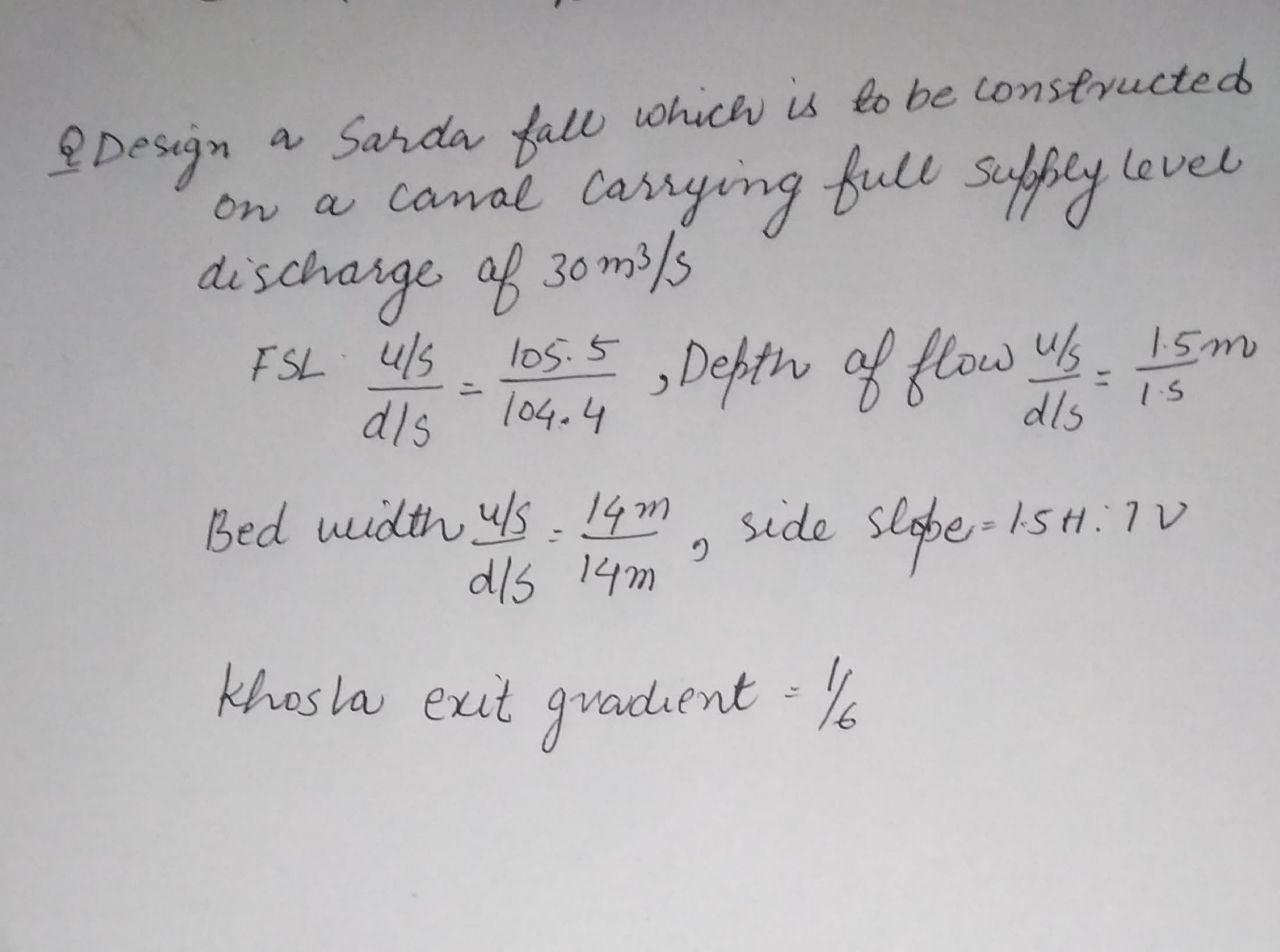 Q Design a Sarda fall which is to be constructed
on a canal carrying full supply level
discharge of 30 m3/s
FSL u/s / d/s = 105.5 / 104.4 , Depth of flow u/s / d/s = 1.5 m / 1.5
Bed width u/s / d/s = 14 m / 14 m , side slope = 1.5 H : 1 V
Khosla exit gradient = 1/6